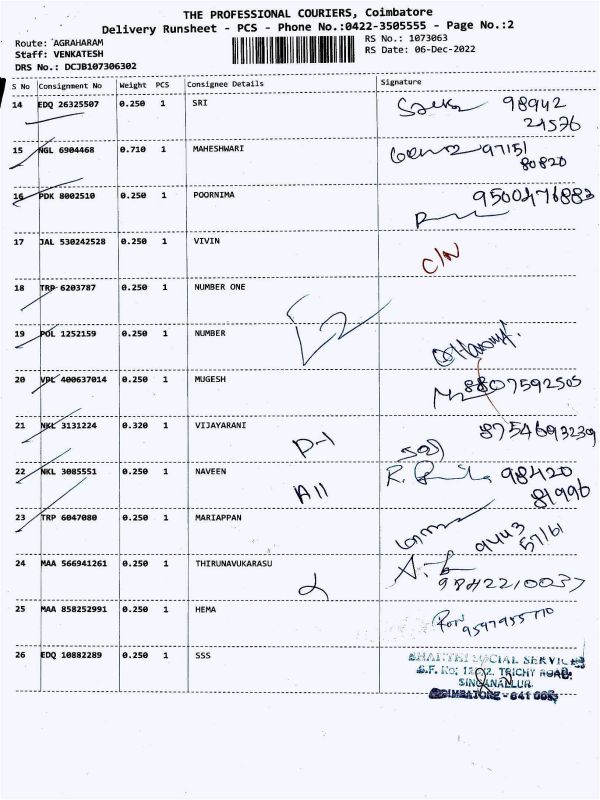 THE PROFESSIONAL COURIERS, Coimbatore
Delivery Runsheet - PCS - Phone No.:0422-3505555 - Page No.:2
Route: AGRAHARAM
Staff: VENKATESH
DRS No.: DCJB107306302
RS No.: 1073063
RS Date: 06-Dec-2022
S No Consignment No Weight PCS Consignee Details Signature
14 EDQ 26325507 0.250 1 SRI 98942
21576
15 NGL 6904468 0.710 1 MAHESHWARI 97151
80820
16 PDK 8002510 0.250 1 POORNIMA 9500476883
17 JAL 530242528 0.250 1 VIVIN C/N
18 TRP 6203787 0.250 1 NUMBER ONE
19 POL 1252159 0.250 1 NUMBER
20 VPL 400637014 0.250 1 MUGESH 8807592505
21 NKL 3131224 0.320 1 VIJAYARANI D-1 8754693239
22 NKL 3085551 0.250 1 NAVEEN A11 98420
81996
23 TRP 6047080 0.250 1 MARIAPPAN 9443
57161
24 MAA 566941261 0.250 1 THIRUNAVUKARASU 9842210037
25 MAA 858252991 0.250 1 HEMA 9597955770
26 EDQ 10882289 0.250 1 SSS
SOCIAL SERVICE
TRICHY ROAD
SINGANALLUR
COIMBATORE - 641 005